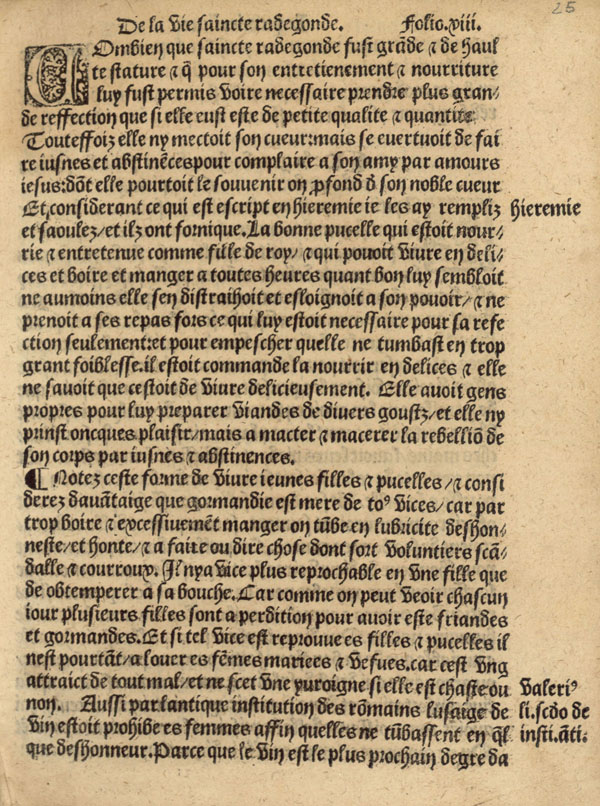 25
De la vie saincte radegonde. Folio.xiii.
COmbien que saincte radegonde fust grãde ⁊ de haul
te stature ⁊ q̃ pour son entretienement ⁊ nourriture
luy fust permis voire necessaire prendre plus gran⸗
de reffection que si elle eust este de petite qualite ⁊ quantite
Touteffoiz elle ny mectoit son cueur:mais se evertuoit de fai
re iusnes et abstinẽces pour complaire a son amy par amours
iesus:dõt elle pourtoit le souvenir on ꝓfond d̕ son noble cueur
Et considerant ce qui est escript en hieremie ie les ay rempliz hieremie
et saoulez/et ilz ont fornique. La bonne pucelle qui estoit nour⸗
rie ⁊ entretenue comme fille de roy/⁊ qui pouoit vivre en deli⸗
ces et boire et manger a toutes heures quant bon luy sembloit
ne aumoins elle sen distraihoit et esloignoit a son pouoir/⁊ ne
prenoit a ses repas fors ce qui luy estoit necessaire pour sa refe
ction seulement:et pour empescher quelle ne tumbast en trop
grant foiblesse.il estoit commande la nourrir en delices ⁊ elle
ne savoit que cestoit de vivre delicieusement. Elle avoit gens
propres pour luy preparer viandes de divers goustz/et elle ny
prinst oncques plaisir/mais a macter ⁊ macerer la rebelliõ de
son corps par iusnes ⁊ abstinences.
¶ Notez ceste forme de vivre ieunes filles ⁊ pucelles/⁊ consi
derez davãtaige que gormandie est mere de toꝰ vices/ car par
trop boire ⁊ excessivemẽt manger on tũbe en lubricite deshon⸗
neste/et honte/⁊ a faire ou dire chose dont sort voluntiers scã⸗
dalle ⁊ courroux. Il nya vice plus reprochable en vne fille que
de obtemperer a sa bouche. Car comme on peut veoir chascun
iour plusieurs filles sont a perdition pour avoir este friandes
et gormandes. Et si tel vice est reprouve es filles ⁊ pucelles il
nest pourtãt/a louer es fẽmes mariees ⁊ vefves.car cest vng
attraict de tout mal/et ne scet vne yuroigne si elle est chaste ou Valeriꝰ
non. Aussi par lantique institution des rõmains lusaige de li.scdo de
vin estoit prohibe es femmes affin quelles ne tũbassent en q̃l insti.ãti.
que deshonneur. Parce que le vin est le plus prochain degre da